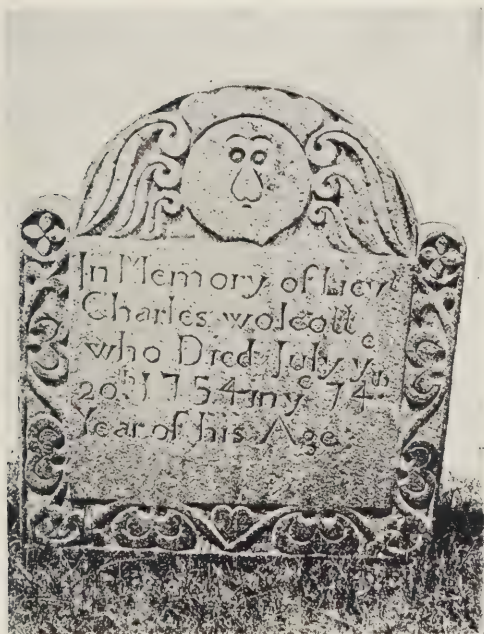 In Memory of Lievt
Charles wolcott
who Died July ye
20th 1754 in ye 74th
Year of his Age